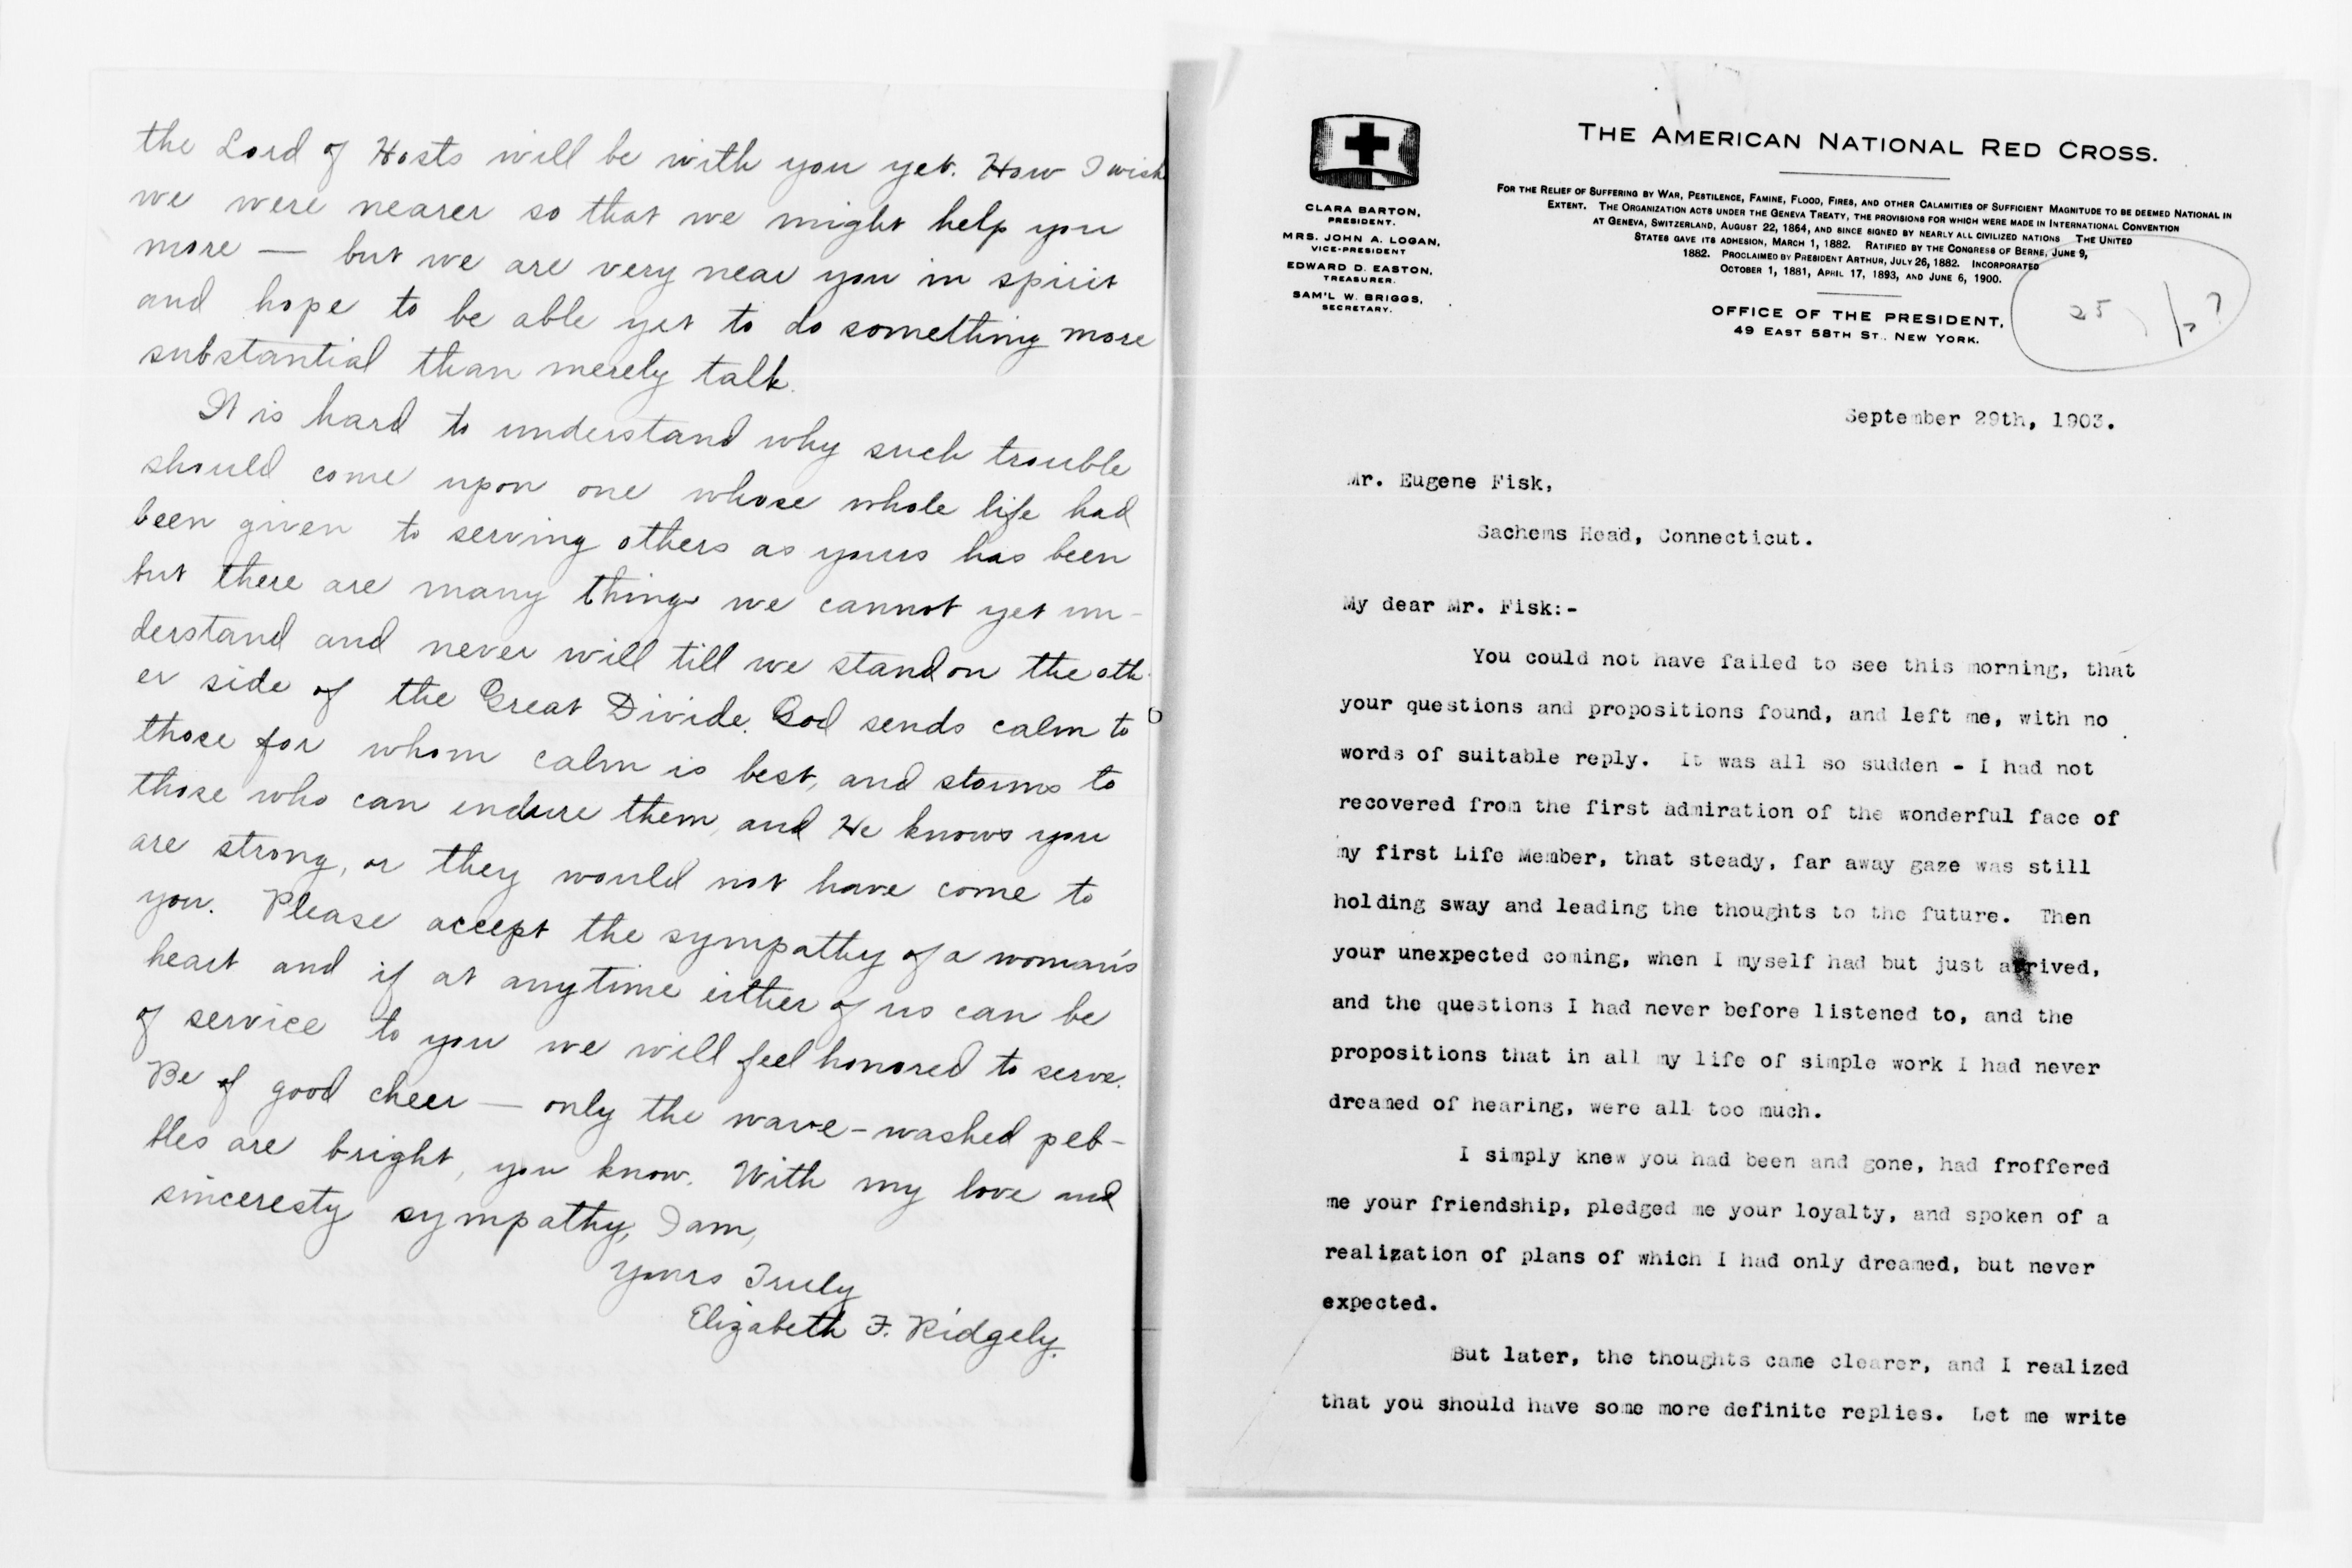 the Lord of Hosts will be with you yet. How I wish
we were nearer so that we might help you
more — but we are very near you in spirit
and hope to be able yet to do something more
substantial than merely talk.
It is hard to understand why such trouble
should come upon one whose whole life had
been given to serving others as yours has been
but there are many things we cannot yet un-
derstand and never will till we stand on the oth-
er side of the Great Divide. God sends calm to
those for whom calm is best, and storms to
those who can endure them, and He knows you
are strong, or they would not have come to
you. Please accept the sympathy of a woman's
heart and if at anytime either of us can be
of service to you we will feel honored to serve.
Be of good cheer — only the wave-washed peb-
bles are bright, you know. With my love and
sinceresty sympathy, I am,
Yours Truly
Elizabeth F. Ridgely.
CLARA BARTON,
PRESIDENT.
MRS. JOHN A. LOGAN,
VICE-PRESIDENT
EDWARD D. EASTON,
TREASURER.
SAM'L W. BRIGGS,
SECRETARY.
THE AMERICAN NATIONAL RED CROSS.
FOR THE RELIEF OF SUFFERING BY WAR, PESTILENCE, FAMINE, FLOOD, FIRES, AND OTHER CALAMITIES OF SUFFICIENT MAGNITUDE TO BE DEEMED NATIONAL IN
EXTENT. THE ORGANIZATION ACTS UNDER THE GENEVA TREATY, THE PROVISIONS FOR WHICH WERE MADE IN INTERNATIONAL CONVENTION
AT GENEVA, SWITZERLAND, AUGUST 22, 1864, AND SINCE SIGNED BY NEARLY ALL CIVILIZED NATIONS THE UNITED
STATES GAVE ITS ADHESION, MARCH 1, 1882. RATIFIED BY THE CONGRESS OF BERNE, JUNE 9,
1882. PROCLAIMED BY PRESIDENT ARTHUR, JULY 26, 1882. INCORPORATED
OCTOBER 1, 1881, APRIL 17, 1893, AND JUNE 6, 1900.
OFFICE OF THE PRESIDENT,
49 EAST 58TH ST., NEW YORK.
25
September 29th, 1903.
Mr. Eugene Fisk,
Sachems Head, Connecticut.
My dear Mr. Fisk:-
You could not have failed to see this morning, that
your questions and propositions found, and left me, with no
words of suitable reply. It was all so sudden - I had not
recovered from the first admiration of the wonderful face of
my first Life Member, that steady, far away gaze was still
holding sway and leading the thoughts to the future. Then
your unexpected coming, when I myself had but just arrived,
and the questions I had never before listened to, and the
propositions that in all my life of simple work I had never
dreamed of hearing, were all too much.
I simply knew you had been and gone, had froffered
me your friendship, pledged me your loyalty, and spoken of a
realization of plans of which I had only dreamed, but never
expected.
But later, the thoughts came clearer, and I realized
that you should have some more definite replies. Let me write